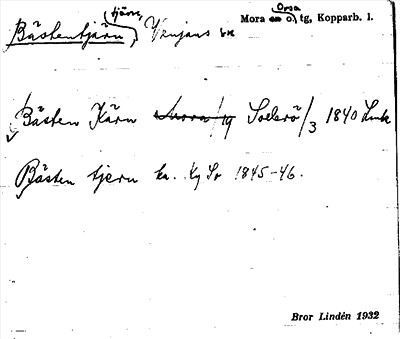 Bästentjärn (tjärn), Venjans sn
Mora o. Orsa tg, Kopparb. l.
Bästen Kärn Solsrö/3 1840 Link
Bästen tjern ka. Kg Sr 1845-46.
Bror Lindén 1932